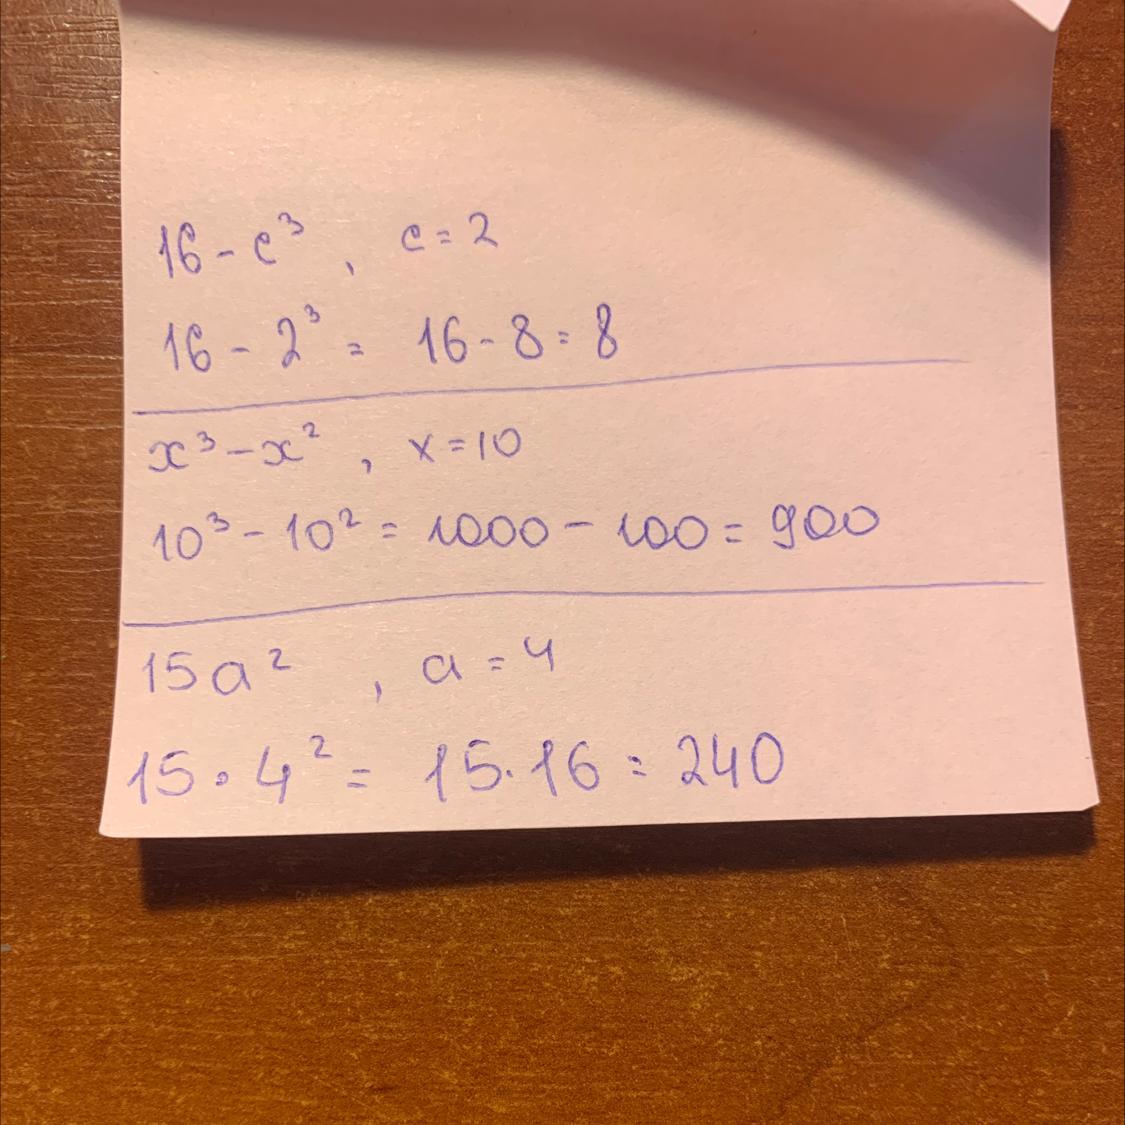 16 - c³, c = 2
16 - 2³ = 16 - 8 = 8
x³ - x², x = 10
10³ - 10² = 1000 - 100 = 900
15a², a = 4
15 · 4² = 15 · 16 = 240